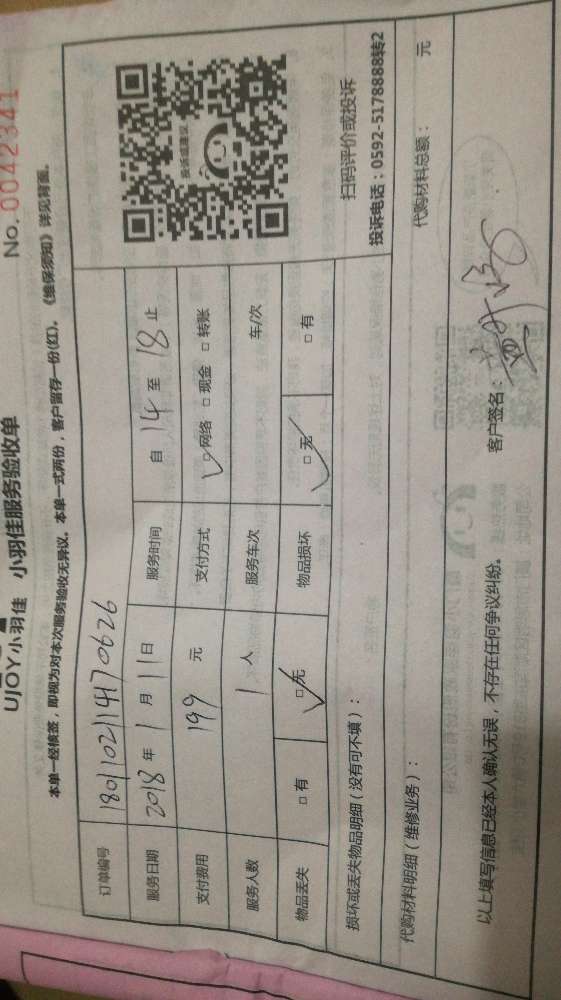 UJOY小羽佳 小羽佳服务验收单
No.0042341
本单一经核签，即视为对本次服务验收无异议。本单一式两份，客户留存一份(红)。《维保须知》详见背面。
订单编号 1801102114170626
服务日期 2018年1月11日 服务时间 自14至18止
支付费用 199元 支付方式 □网络 □现金 □转账
服务人数 1人 服务车次 车/次
物品丢失 □有 □无 物品损坏 □无 □有
投诉或建议
扫码评价或投诉
投诉电话：0592-5178888转2
损坏或丢失物品明细（没有可不填）：
代购材料明细（维修业务）： 代购材料总额： 元
以上填写信息已经本人确认无误，不存在任何争议纠纷。 客户签名：